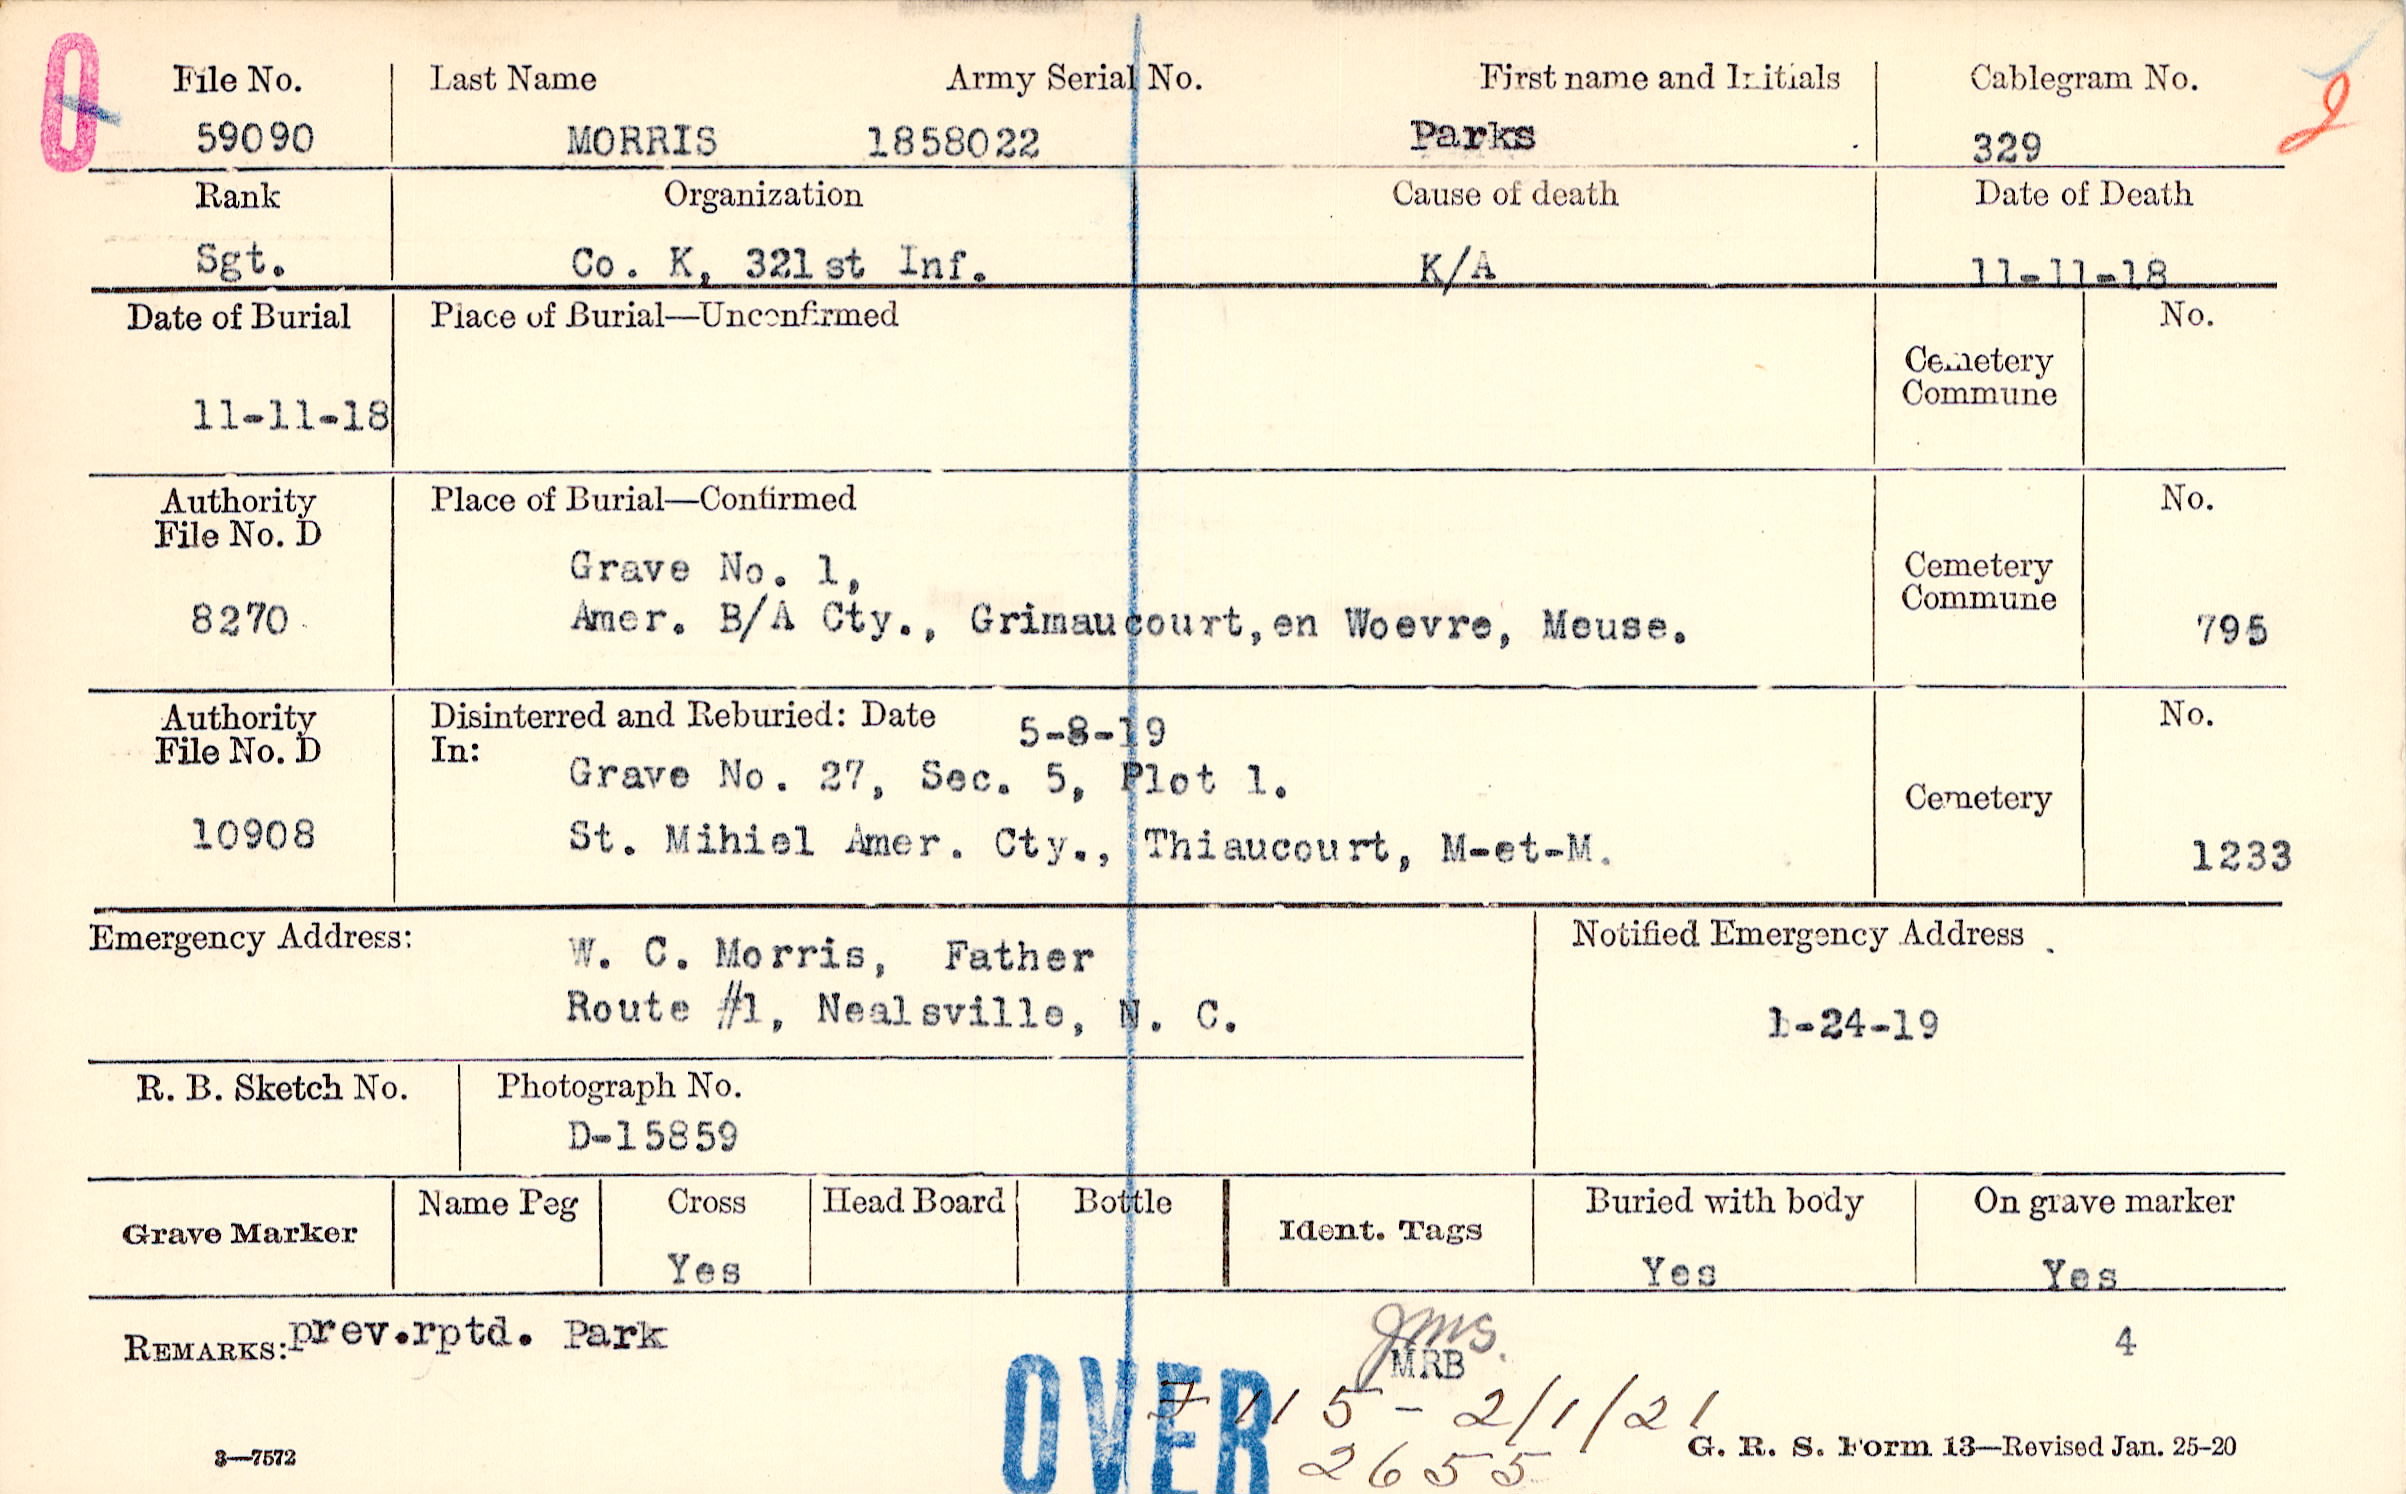 0 File No. Last Name Army Serial No. First name and Initials Cablegram No.
59090 MORRIS 1858022 Parks 329
Rank Organization Cause of death Date of Death
Sgt. Co. K, 321st Inf. K/A 11-11-18
Date of Burial Place of Burial—Unconfirmed No.
Cemetery
Commune
11-11-18
Authority Place of Burial—Confirmed No.
File No. D
Grave No. 1, Cemetery
Commune
8270 Amer. B/A Cty., Grimaucourt,en Woevre, Meuse. 795
Authority Disinterred and Reburied: Date 5-8-19 No.
File No. D In:
Grave No. 27, Sec. 5, Plot 1.
Cemetery
10908 St. Mihiel Amer. Cty., Thiaucourt, M-et-M. 1233
Emergency Address: W. C. Morris, Father Notified Emergency Address
Route #1, Nealsville, N. C. 1-24-19
R. B. Sketch No. Photograph No.
D-15859
Grave Marker Name Peg Cross Head Board Bottle Ident. Tags Buried with body On grave marker
Yes Yes Yes
REMARKS: prev.rptd. Park
JMS. 4
MRB
OVER
7 115 - 2/1/21
2655
3—7572 G. R. S. Form 13—Revised Jan. 25-20